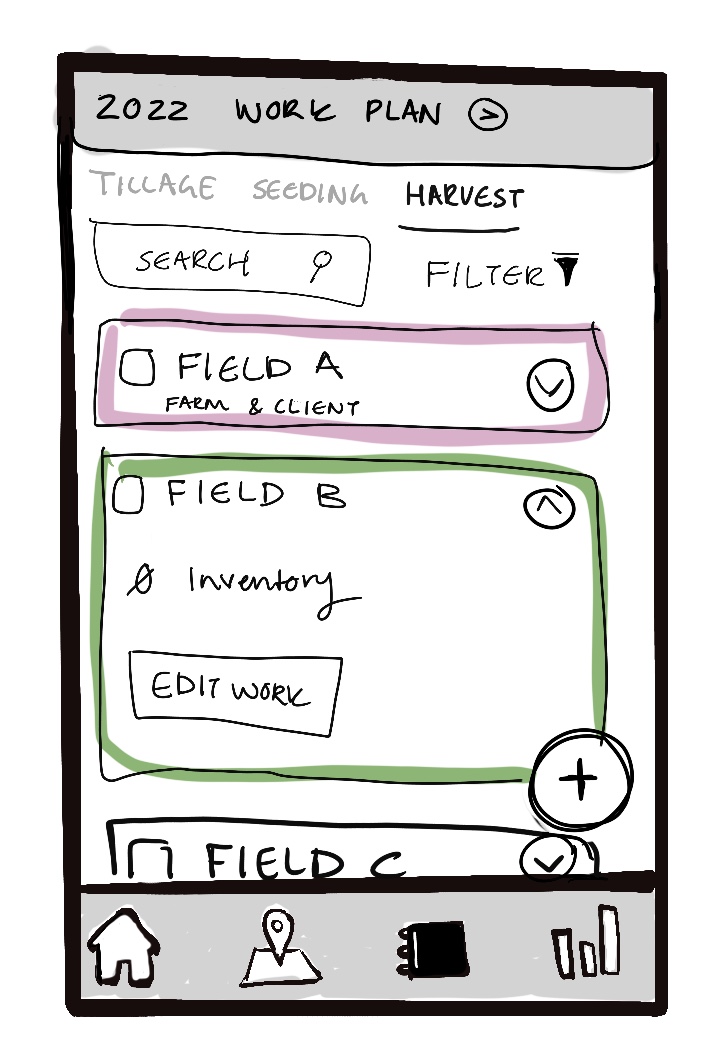 2022 WORK PLAN >
TILLAGE SEEDING HARVEST
SEARCH FILTER
FIELD A
FARM & CLIENT
FIELD B
Ø Inventory
EDIT WORK
+
FIELD C